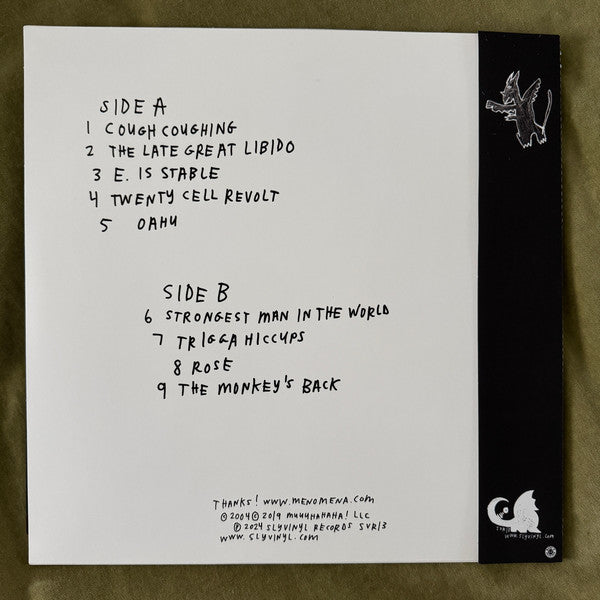 SIDE A
1 COUGH COUGHING
2 THE LATE GREAT LIBIDO
3 E. IS STABLE
4 TWENTY CELL REVOLT
5 OAHU
SIDE B
6 STRONGEST MAN IN THE WORLD
7 TRIGGA HICCUPS
8 ROSE
9 THE MONKEY'S BACK
THANKS! WWW.MENOMENA.COM
©2004 © 2019 MUUUHAHAHA! LLC
℗ 2024 SLYVINYL RECORDS SVR13
WWW.SLYVINYL.COM
WWW.SLYVINYL.COM